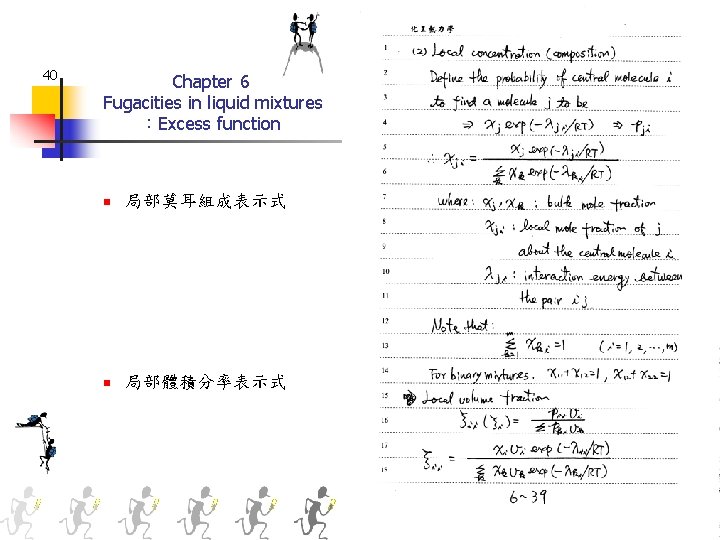 40
Chapter 6
Fugacities in liquid mixtures
：Excess function
局部莫耳組成表示式
局部體積分率表示式
化工熱力學
1 (2) Local concentration (composition)
2 Define the probability of central molecule i
3 to find a molecule j to be
4 ⇒ xj exp(-λji/RT) ⇒ Pji
5 ∴ xji = xj exp(-λji/RT)
6 Σk xk exp(-λki/RT)
7 where: xj, xk : bulk mole fraction
8 xji : local mole fraction of j
9 about the central molecule i
10 λji : interaction energy between
11 the pair ij
12 Note that:
13 Σk xki = 1 (i=1, 2, ..., m)
14 For binary mixtures. x11+x21=1, x12+x22=1
15 Local volume fraction
16 ξii (ξi) = Pii υi / Σk Pki υk
17 ξi = xi υi exp(-λii/RT)
18 Σk xk υk exp(-λki/RT)
6~39